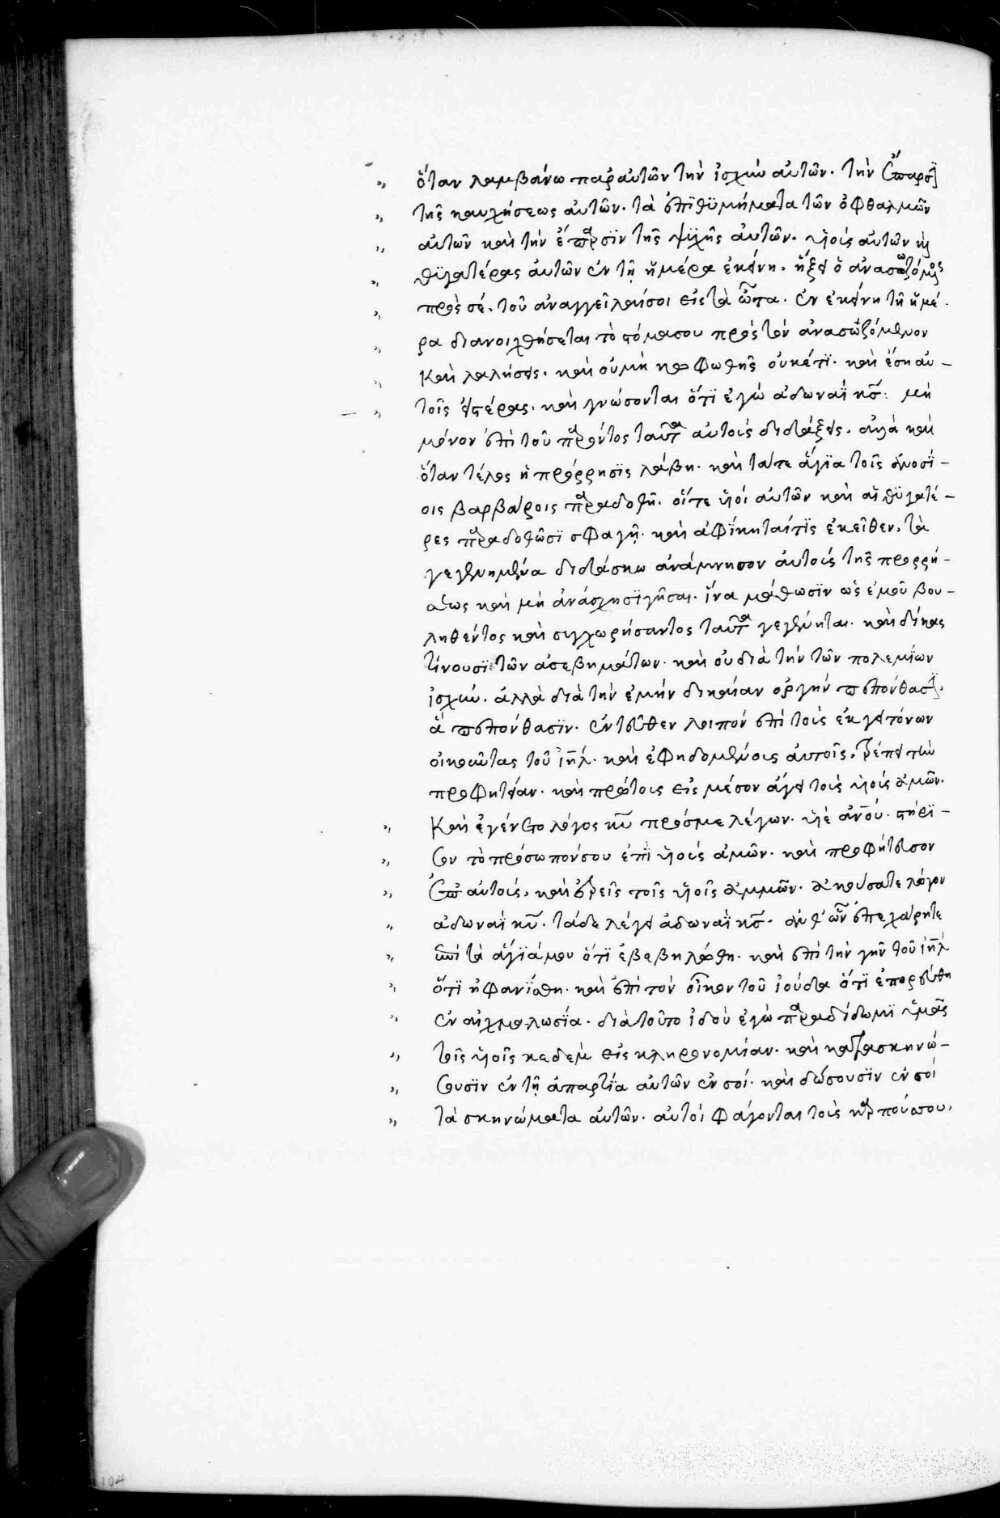 ὅταν λαμβάνω παρ αὐτῶν τὴν ἰσχὺν αὐτῶν. τὴν ἔπαρσϊν
τῆς καυχήσεως αὐτῶν. τὰ ἐπϊθϋμήματα τῶν ὀφθαλμῶν
αὐτῶν καὶ τὴν ἔπαρσϊν τῆς ψϋχῆς αὐτῶν. ϋἱοὺς αὐτῶν καὶ
θϋγατέρας αὐτῶν ἐν τῇ ἡμέρα ἐκείνη. ἥξει ὁ ἀνασωζόμενος
πρὸς σέ. τοῦ ἀναγγεῖλαί σοι εἰς τὰ ὦτα. ἐν ἐκείνη τῇ ἡμέ.
ρα διανοιχθήσεται τὸ στόμα σου πρὸς τὸν ἀνασωζόμενον
καὶ λαλήσεις. καὶ οὐ μὴ κωφωθῆς οὐκέτϊ. καὶ ἔση αὐ-
τοῖς εἰς τέρας. καὶ γνώσονται ὅτϊ ἐγὼ ἀδωναῒ κ̅ς̅: μὴ
μόνον ἐπὶ τοῦ παρόντος ταῦτα αὐτοὺς διδάξεις. ἀλλὰ καὶ
ὅταν τέλος ἡ πρόρρησϊς λάβη. καὶ τά τε ἅγϊα τοῖς δυσσϊ-
οις βαρβάροις παραδοθῆ. οἵ τε ϋἱοὶ αὐτῶν καὶ αἱ θϋγατέ-
ρες παραδοθῶσϊ σφαγῇ. καὶ ἀφΐκηταί τϊς ἐκεῖθεν, τὰ
γεγενημένα διδάσκων ἀνάμνησον αὐτοὺς τῆς προρρή-
σεως καὶ μὴ ἀνάσχη σϊγῆσαι. ἵνα μάθωσϊν ὡς ἐμοῦ βου-
ληθέντος καὶ συγχωρήσαντος ταῦτα γεγένηται. καὶ δίκας
τίνουσϊ τῶν ἀσεβημάτων. καὶ οὐ διὰ τὴν τῶν πολεμίων
ἰσχύν. ἀλλὰ διὰ τὴν ἐμὴν δικαίαν ὀργὴν πεπόνθασϊν.
ἃ πεπόνθασϊν. ἐντεῦθεν λοιπὸν ἐπὶ τοὺς ἐκ γειτόνων
οἰκοῦντας τοῦ ἰ̅η̅λ̅. καὶ ἐφηδομένους αὐτοῖς, τρέπει τὴν
προφητείαν. καὶ πρώτους εἰς μέσον ἄγει τοὺς ϋἱοὺς ἀμῶν.
Καὶ ἐγένετο λόγος κ̅υ̅ πρός με λέγων. ϋἱὲ ἀν̅ο̅υ̅. στήρϊ-
σον τὸ πρόσωπόν σου ἐπὶ ϋἱοὺς ἀμῶν. καὶ προφήτευσον
ἐπ αὐτοὺς, καὶ ἐρεῖς τοῖς ϋἱοῖς ἀμμῶν. ἀκούσατε λόγον
ἀδωναῒ κ̅υ̅. τάδε λέγει ἀδωναῒ κ̅ς̅. ἀνθ' ὧν ἐπεχάρητε
ἐπὶ τὰ ἅγϊά μου ὅτϊ ἐβεβηλώθη. καὶ ἐπὶ τὴν γῆν τοῦ ἰ̅η̅λ̅
ὅτϊ ἠφανΐσθη. καὶ ἐπὶ τὸν οἶκον τοῦ ἰούδα ὅτϊ ἐπορεύθη
ἐν αἰχμαλωσΐα. διὰ τοῦτο ἰδοὺ ἐγὼ παραδίδωμϊ ϋμᾶς
τοῖς ϋἱοῖς κεδεμ εἰς κληρονομίαν. καὶ κατασκηνώ-
σουσϊν ἐν τῇ ἀπαρτία αὐτῶν ἐν σοί. καὶ δώσουσϊν ἐν σοὶ
τὰ σκηνώματα αὐτῶν. αὐτοὶ φάγονται τοὺς καρπούς σου.